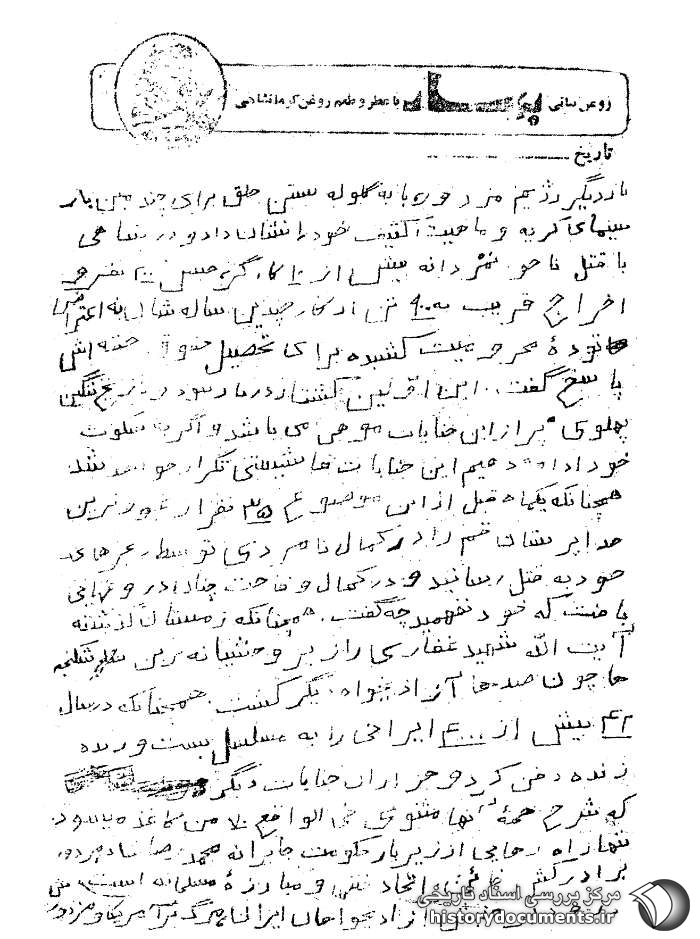 روغن نباتی پرستار با عطر و طعم روغن کرمانشاهی
تاریخ
بار دیگر رژیم مزدور با به گلوله بستن خلق برای چندمین بار
سیمای کریه و ماهیت کثیف خود را نشان داد و در
با قتل ناجوانمردانه بیش از کارگر حبس نفر و
اخراج قریب به تن از کار چندین ساله شان به اعتراض
توده محرومیت کشیده برای تحصیل حقوق حقه اش
پاسخ گفت. این اولین کشتار دربار نبود و تاریخ ننگین
پهلوی پر از این جنایات موحش می باشد و اگر به سکوت
خود ادامه دهیم این جنایت ها تکرار خواهد شد
همچنانکه یکماه قبل از این موضوع نفر از غیورترین
قم را در کمال نامردی توسط
خود به قتل رسانید و در کمال وقاحت چنان در و
بافت که خود نفهمید چه گفت. همچنانکه زمستان گذشته
آیت الله شهید غفاری را زیر وحشیانه ترین شکنجه
ها چون صدها آزادیخواه دیگر کشت. همچنانکه در سال
۴۲ بیش از ایرانی را به مسلسل بست و زنده
زنده دفن کرد و هزاران جنایات دیگر
که شرح همه آنها مثنوی فی الواقع ۷۰ من کاغذ میشود.
تنها راه رهایی از زیر بار حکومت جابرانه محمد رضا شاه مزدور
برادرکش اتحاد و مبارزه مسلحانه است
آزادیخواهان ایران مرگ بر آمریکا و مزدور
مرکز بررسی اسناد تاریخی
historydocuments.ir